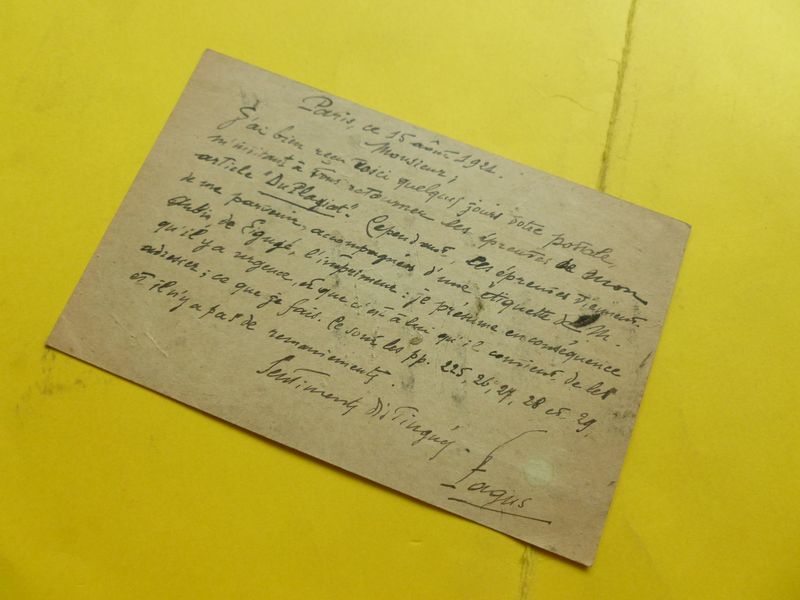 Paris, ce 15 août 1921.
Monsieur,
J'ai bien reçu voici quelques jours votre postale,
m'invitant à vous retourner les épreuves de mon
article "Du Plagiat". Cependant, ces épreuves viennent
de me parvenir, accompagnées d'une étiquette de M.
de l'imprimeur : je présume en conséquence
qu'il y a urgence, et que c'est à lui qu'il convient de les
adresser ; ce que je fais. Ce sont les pp. 225, 26, 27, 28 et 29.
et il n'y a pas de remaniements.
Sentiments distingués.
Fagus